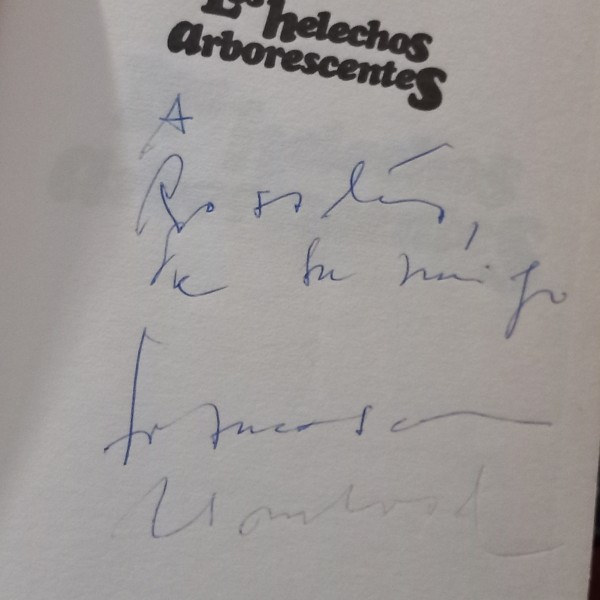 Los helechos
arborescentes
A
Rosalía,
de su amigo
Francisco
Umbral